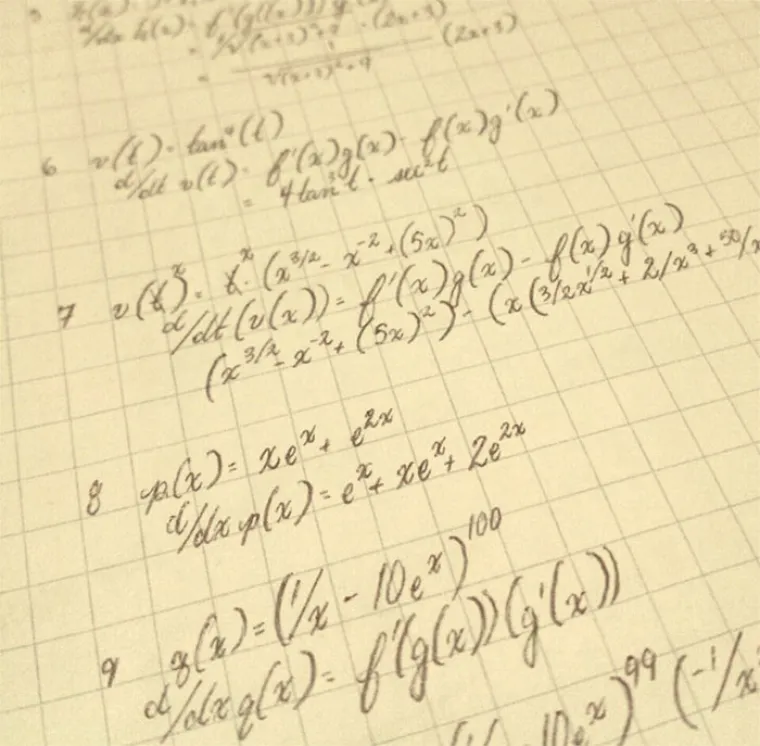 d/dx h(x) = f'(g(x)) g
(2x+3)
= 1/√(x+3)²+9 (2x+3)
6 v(t) = tan⁴(t)
d/dt v(t) = f'(x)g(x) - f(x)g'(x)
= 4tan³t · sec²t
7 v(x) = x · (x^3/2 - x^-2 + (5x)²)
d/dt(v(x)) = f'(x)g(x) - f(x)g'(x)
(x^3/2 - x^-2 + (5x)²) - (x(3/2x^1/2 + 2/x³ + 50/x
8 p(x) = xe^x + e^2x
d/dx p(x) = e^x + xe^x + 2e^2x
9 q(x) = (1/x - 10e^x)^100
d/dx q(x) = f'(g(x))(g'(x))
10e^x)^99 (-1/x